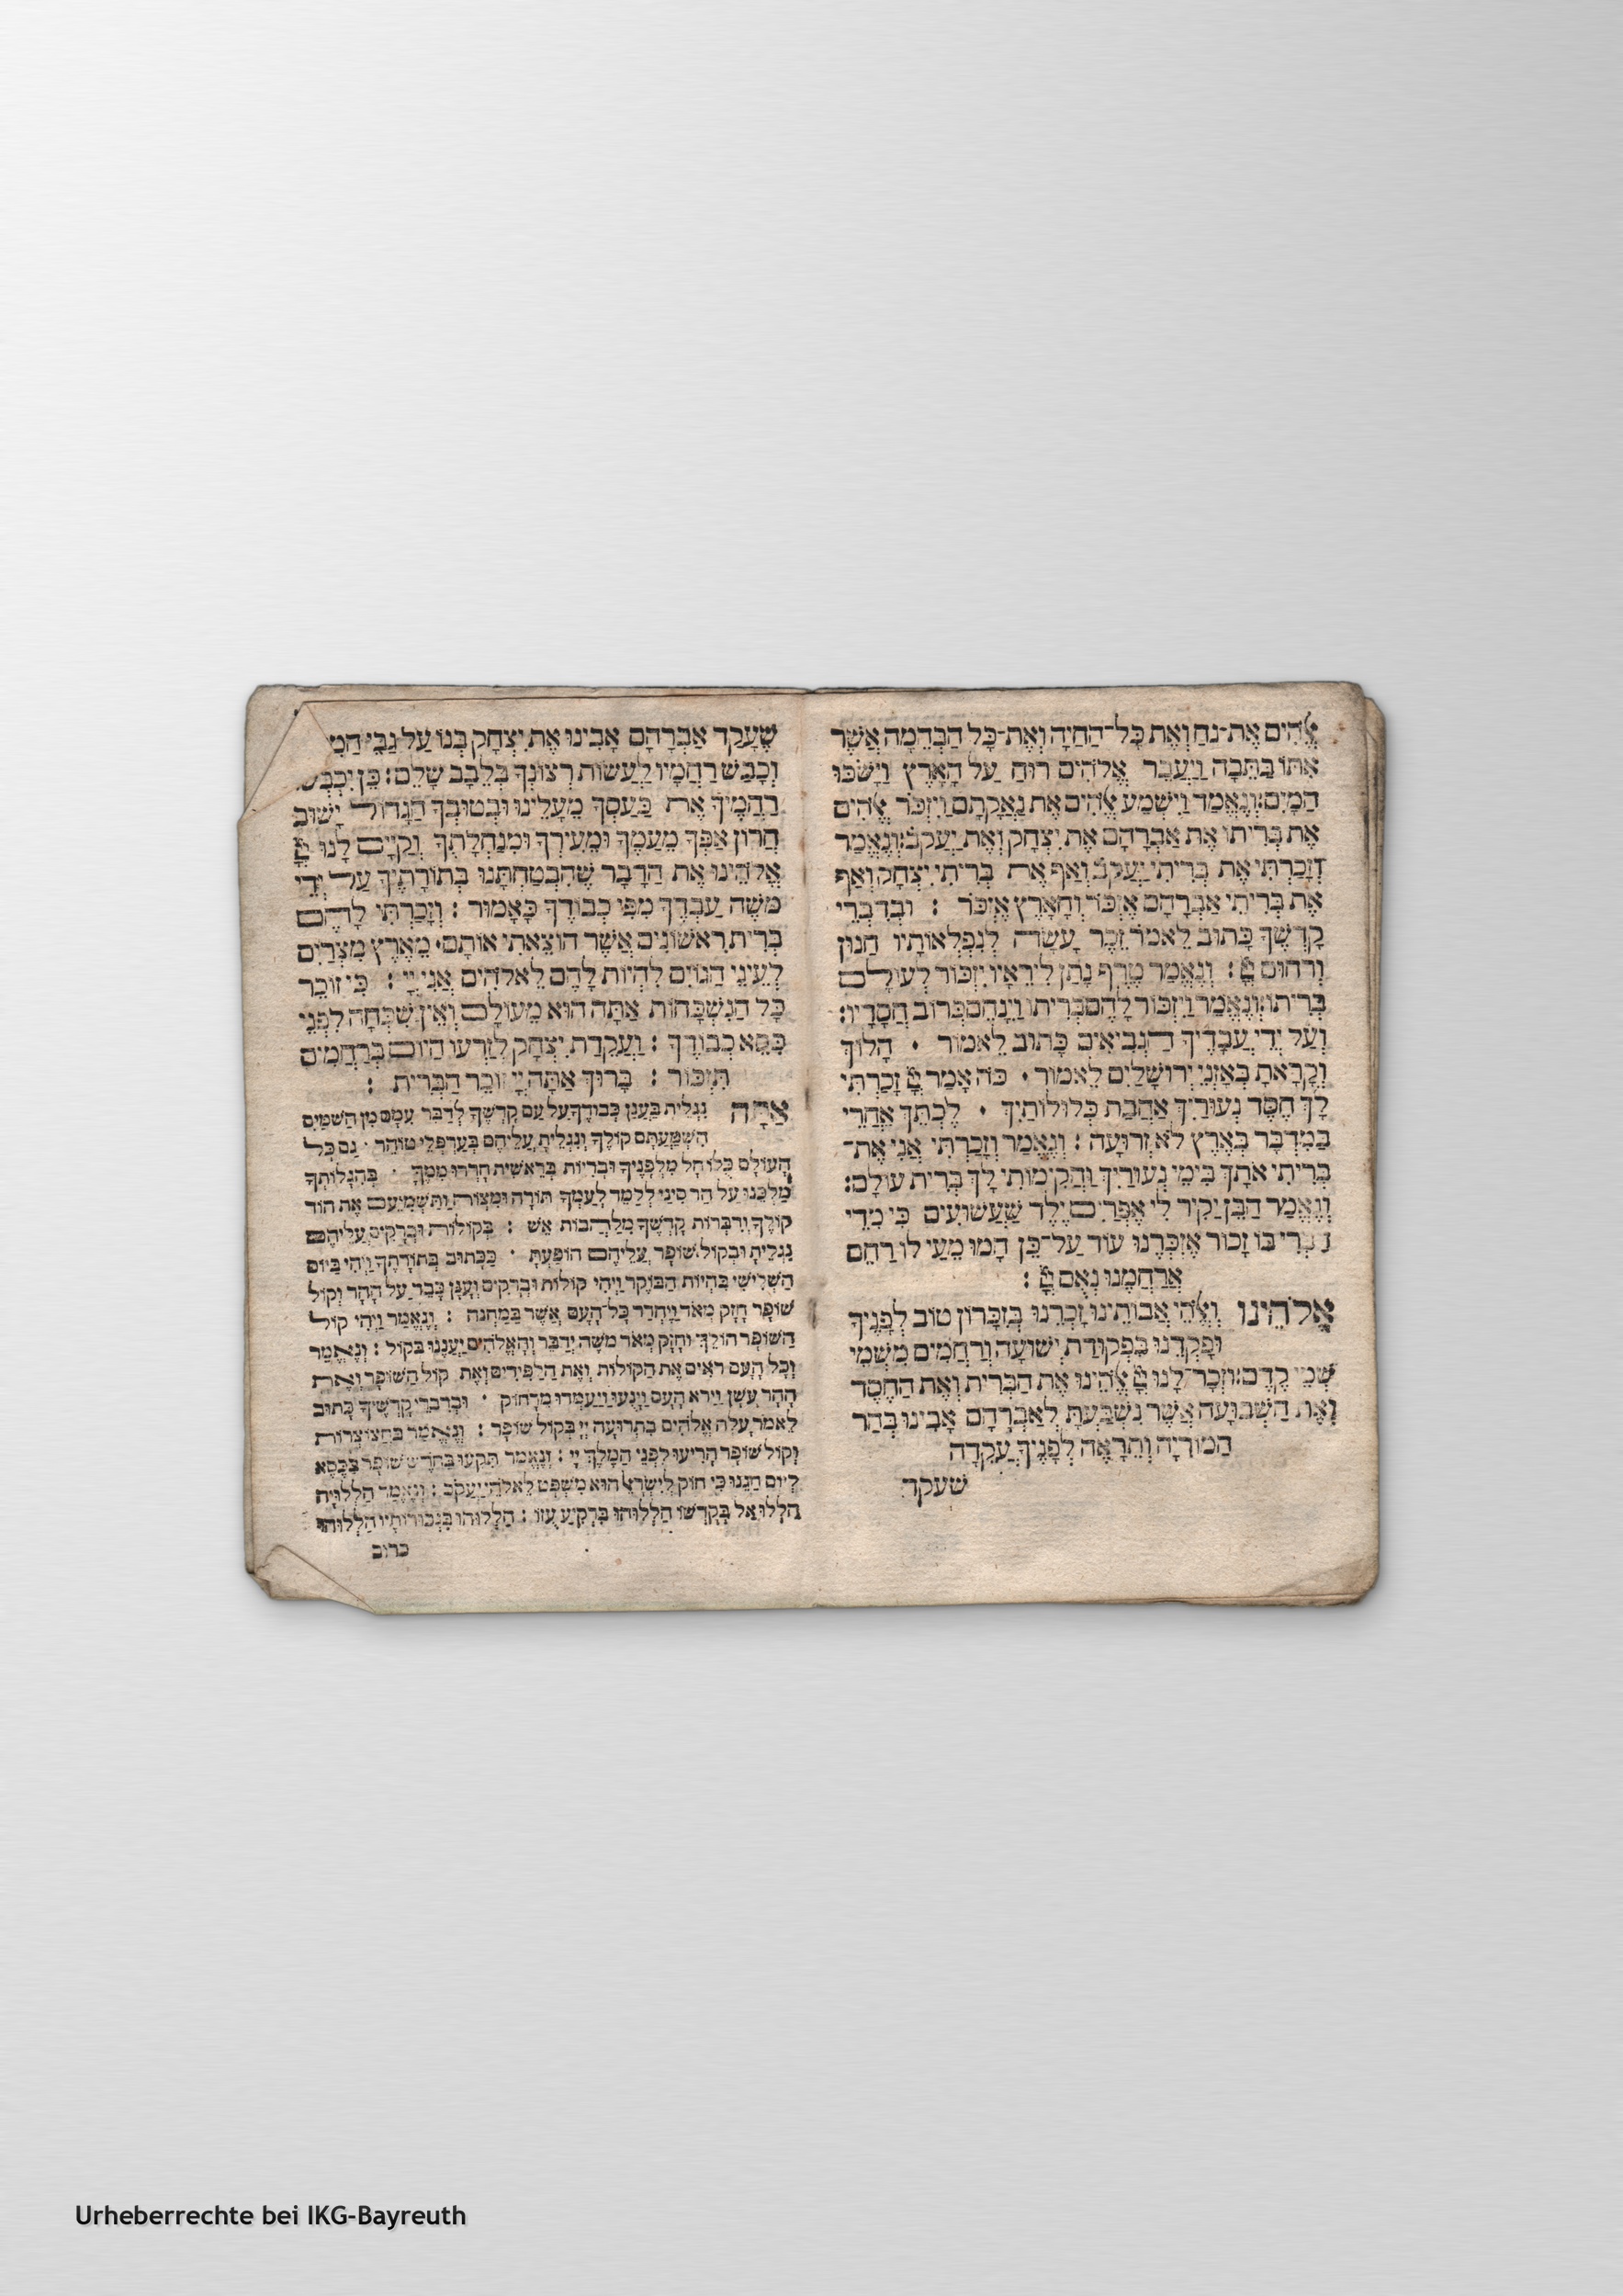 אלהים אֶת־נֹחַ וְאֶת כָּל־הַחַיָּה וְאֶת־כָּל הַבְּהֵמָה אֲשֶׁר
אִתּוֹ בַּתֵּבָה וַיַּעֲבֵר אֱלֹהִים רוּחַ עַל הָאָרֶץ וַיָּשֹׁכּוּ
הַמָּיִם: וְנֶאֱמַר וַיִּשְׁמַע אֱלֹהִים אֶת נַאֲקָתָם וַיִּזְכֹּר אֱלֹהִים
אֶת בְּרִיתוֹ אֶת אַבְרָהָם אֶת יִצְחָק וְאֶת יַעֲקֹב: וְנֶאֱמַר
וְזָכַרְתִּי אֶת בְּרִיתִי יַעֲקֹב וְאַף אֶת בְּרִיתִי יִצְחָק וְאַף
אֶת בְּרִיתִי אַבְרָהָם אֶזְכֹּר וְהָאָרֶץ אֶזְכֹּר : וּבְדִבְרֵי
קָדְשְׁךָ כָּתוּב לֵאמֹר זֵכֶר עָשָׂה לְנִפְלְאוֹתָיו חַנּוּן
וְרַחוּם יְיָ : וְנֶאֱמַר טֶרֶף נָתַן לִירֵאָיו יִזְכּוֹר לְעוֹלָם
בְּרִיתוֹ: וְנֶאֱמַר וַיִּזְכּוֹר לָהֶם בְּרִיתוֹ וַיִּנָּחֵם כְּרוֹב חֲסָדָיו:
וְעַל יְדֵי עֲבָדֶיךָ הַנְּבִיאִים כָּתוּב לֵאמוֹר · הָלוֹךְ
וְקָרָאתָ בְאָזְנֵי יְרוּשָׁלַיִם לֵאמוֹר · כֹּה אָמַר יְיָ זָכַרְתִּי
לָךְ חֶסֶד נְעוּרַיִךְ אַהֲבַת כְּלוּלוֹתָיִךְ · לֶכְתֵּךְ אַחֲרַי
בַּמִּדְבָּר בְּאֶרֶץ לֹא זְרוּעָה : וְנֶאֱמַר וְזָכַרְתִּי אֲנִי אֶת־
בְּרִיתִי אֹתָךְ בִּימֵי נְעוּרָיִךְ וַהֲקִימוֹתִי לָךְ בְּרִית עוֹלָם:
וְנֶאֱמַר הֲבֵן יַקִּיר לִי אֶפְרַיִם יֶלֶד שַׁעֲשׁוּעִים כִּי מִדֵּי
דַבְּרִי בּוֹ זָכוֹר אֶזְכְּרֶנּוּ עוֹד עַל־כֵּן הָמוּ מֵעַי לוֹ רַחֵם
אֲרַחֲמֶנּוּ נְאֻם יְיָ :
אֱלֹהֵינוּ וֵאלֹהֵי אֲבוֹתֵינוּ זָכְרֵנוּ בְּזִכָּרוֹן טוֹב לְפָנֶיךָ
וּפָקְדֵנוּ בִּפְקוּדַת יְשׁוּעָה וְרַחֲמִים מִשְּׁמֵי
שְׁמֵי קֶדֶם: וּזְכָר־לָנוּ יְיָ אֱלֹהֵינוּ אֶת הַבְּרִית וְאֶת הַחֶסֶד
וְאֶת הַשְּׁבוּעָה אֲשֶׁר נִשְׁבַּעְתָּ לְאַבְרָהָם אָבִינוּ בְּהַר
הַמּוֹרִיָּה וְתֵרָאֶה לְפָנֶיךָ עֲקֵדָה
שעקד
שֶׁעָקַד אַבְרָהָם אָבִינוּ אֶת יִצְחָק בְּנוֹ עַל גַּבֵּי
וְכָבַשׁ רַחֲמָיו לַעֲשׂוֹת רְצוֹנְךָ בְּלֵבָב שָׁלֵם: כֵּן יִכְבְּשׁוּ
רַחֲמֶיךָ אֶת כַּעַסְךָ מֵעָלֵינוּ וּבְטוּבְךָ הַגָּדוֹל יָשׁוּב
חֲרוֹן אַפְּךָ מֵעַמְּךָ וּמֵעִירְךָ וּמִנַּחֲלָתֶךָ וְקַיֵּים לָנוּ יְיָ
אֱלֹהֵינוּ אֶת הַדָּבָר שֶׁהִבְטַחְתָּנוּ בְּתוֹרָתֶיךָ עַל יְדֵי
מֹשֶׁה עַבְדֶּךָ מִפִּי כְבוֹדֶךָ כָּאָמוּר : וְזָכַרְתִּי לָהֶם
בְּרִית רִאשׁוֹנִים אֲשֶׁר הוֹצֵאתִי אוֹתָם· מֵאֶרֶץ מִצְרַיִם
לְעֵינֵי הַגּוֹיִם לִהְיוֹת לָהֶם לֵאלֹהִים אֲנִי יְיָ : כִּי זוֹכֵר
כָּל הַנִּשְׁכָּחוֹת אַתָּה הוּא מֵעוֹלָם וְאֵין שִׁכְחָה לִפְנֵי
כִסֵּא כְבוֹדֶךָ : וַעֲקֵדַת יִצְחָק לְזַרְעוֹ הַיּוֹם בְּרַחֲמִים
תִּזְכּוֹר : בָּרוּךְ אַתָּה יְיָ זוֹכֵר הַבְּרִית :
אַתָּה נִגְלֵיתָ בַּעֲנַן כְּבוֹדֶךָ עַל עַם קָדְשֶׁךָ לְדַבֵּר עִמָּם מִן הַשָּׁמַיִם
הִשְׁמַעְתָּם קוֹלֶךָ וְנִגְלֵיתָ עֲלֵיהֶם בְּעַרְפְּלֵי טוֹהַר · גַּם כָּל
הָעוֹלָם כֻּלּוֹ חָל מִלְּפָנֶיךָ וּבְרִיּוֹת בְּרֵאשִׁית חָרְדוּ מִמֶּךָּ · בְּהִגָּלוֹתְךָ
מַלְכֵּנוּ עַל הַר סִינַי לְלַמֵּד לְעַמְּךָ תּוֹרָה וּמִצְוֹת וַתַּשְׁמִיעֵם אֶת הוֹד
קוֹלֶךָ וְדִבְּרוֹת קָדְשֶׁךָ מִלַּהֲבוֹת אֵשׁ : בְּקוֹלוֹת וּבְרָקִים עֲלֵיהֶם
נִגְלֵיתָ וּבְקוֹל שׁוֹפָר עֲלֵיהֶם הוֹפַעְתָּ · כַּכָּתוּב בְּתוֹרָתֶךָ וַיְהִי בַּיּוֹם
הַשְּׁלִישִׁי בִּהְיוֹת הַבּוֹקֶר וַיְהִי קוֹלוֹת וּבְרָקִים וְעָנָן כָּבֵד עַל הָהָר וְקוֹל
שׁוֹפָר חָזָק מְאֹד וַיֶּחֱרַד כָּל־הָעָם אֲשֶׁר בַּמַּחֲנֶה : וְנֶאֱמַר וַיְהִי קוֹל
הַשּׁוֹפָר הוֹלֵךְ וְחָזֵק מְאֹד מֹשֶׁה יְדַבֵּר וְהָאֱלֹהִים יַעֲנֶנּוּ בְקוֹל : וְנֶאֱמַר
וְכָל הָעָם רֹאִים אֶת הַקּוֹלוֹת וְאֶת הַלַּפִּידִים וְאֶת קוֹל הַשּׁוֹפָר וְאֶת
הָהָר עָשֵׁן וַיַּרְא הָעָם וַיָּנֻעוּ וַיַּעַמְדוּ מֵרָחוֹק · וּבְדִבְרֵי קָדְשֶׁיךָ כָּתוּב
לֵאמֹר עָלָה אֱלֹהִים בִּתְרוּעָה יְיָ בְּקוֹל שׁוֹפָר : וְנֶאֱמַר בַּחֲצוֹצְרוֹת
וְקוֹל שׁוֹפָר הָרִיעוּ לִפְנֵי הַמֶּלֶךְ יְיָ : וְנֶאֱמַר תִּקְעוּ בַחֹדֶשׁ שׁוֹפָר בַּכֶּסֶא
לְיוֹם חַגֵּנוּ כִּי חוֹק לְיִשְׂרָאֵל הוּא מִשְׁפָּט לֵאלֹהֵי יַעֲקֹב : וְנֶאֱמַר הַלְלוּיָהּ
הַלְלוּ אֵל בְּקָדְשׁוֹ הַלְלוּהוּ בִּרְקִיעַ עֻזּוֹ : הַלְלוּהוּ בִּגְבוּרוֹתָיו הַלְלוּהוּ
כרוב
Urheberrechte bei IKG-Bayreuth